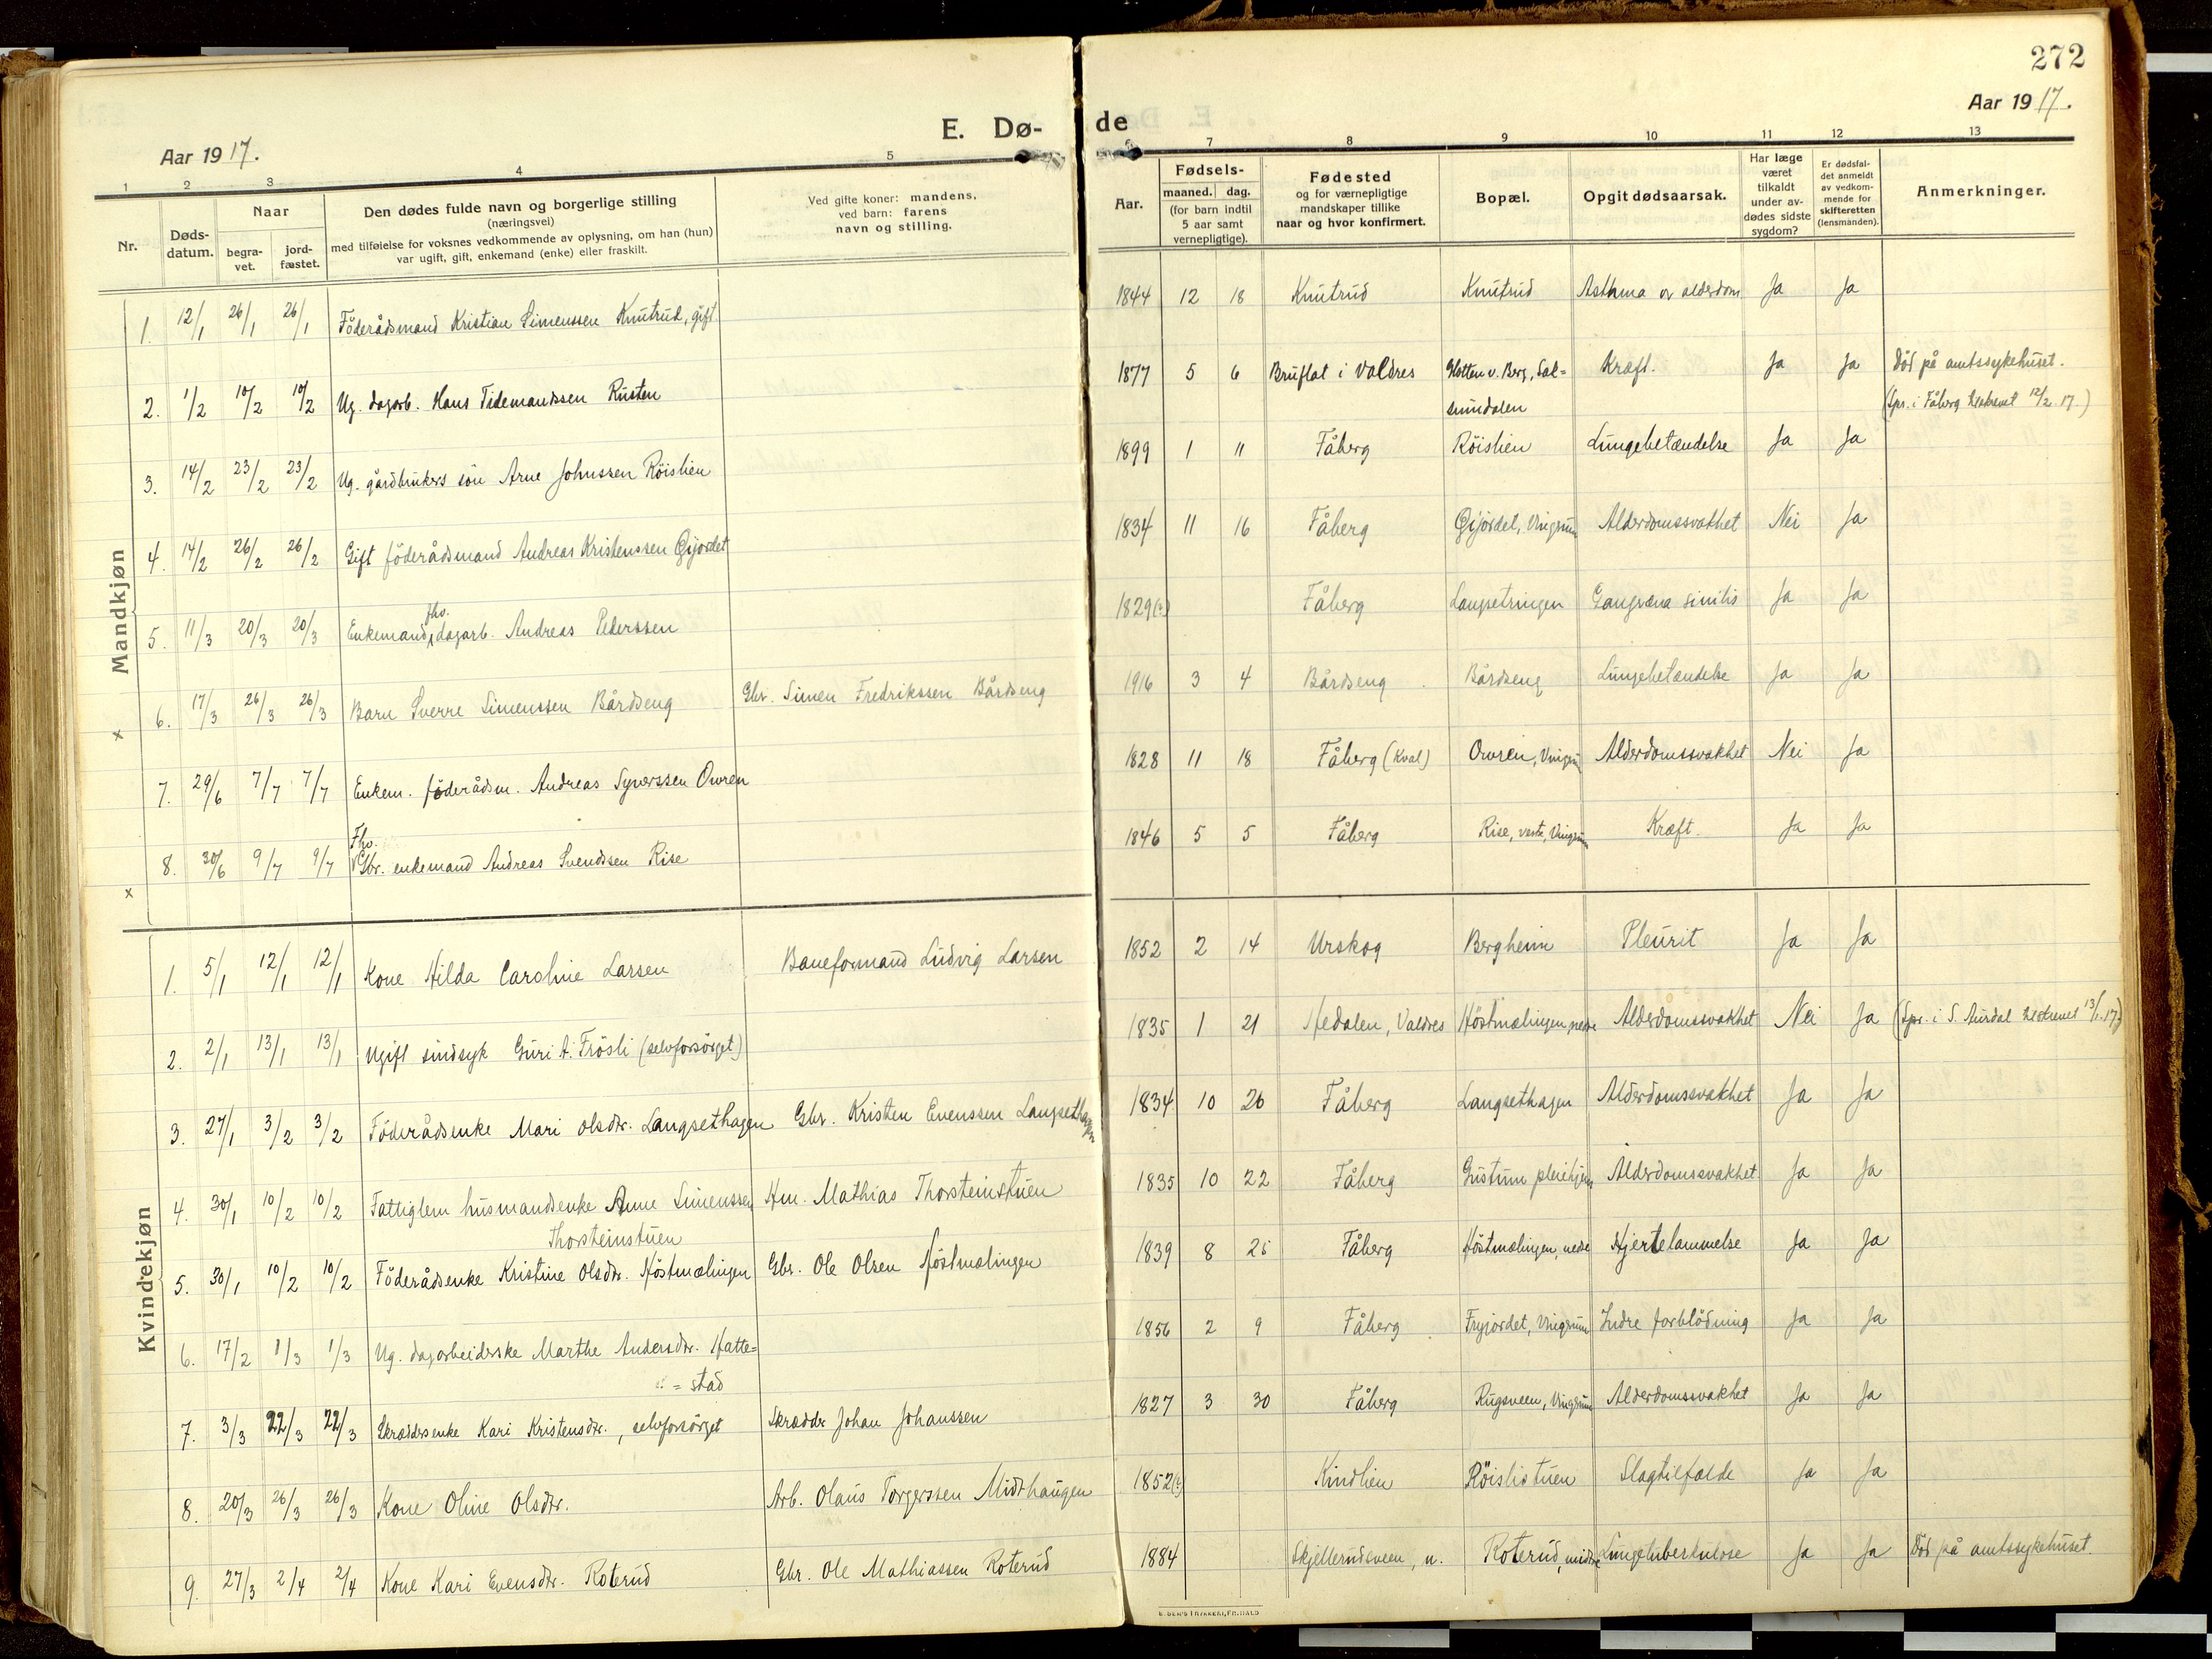 272
Aar 1917.
E. Dø-
de
Aar 1917.
1 2 3 4 5
6 7 8 9 10 11 12 13
Nr.
Døds-
datum.
Naar
begra-
vet.
jord-
fæstet.
Den dødes fulde navn og borgerlige stilling
(næringsvei)
med tilføielse for voksnes vedkommende av oplysning, om han (hun)
var ugift, gift, enkemand (enke) eller fraskilt.
Ved gifte koner: mandens,
ved barn: farens
navn og stilling.
Aar.
Fødsels-
maaned. dag.
(for barn indtil
5 aar samt
vernepligtige).
Fødested
og for værnepligtige
mandskaper tillike
naar og hvor konfirmert.
Bopæl.
Opgit dødsaarsak.
Har læge
været
tilkaldt
under av-
dødes sidste
sygdom?
Er dødsfal-
det anmeldt
av vedkom-
mende for
skifteretten
(lensmanden).
Anmerkninger.
Mandkjøn
1. 12/1 26/1 26/1 Föderådsmand Kristian Simenssen Knutrud, gift. 1844 12 18 Knutrud Knutrud Asthma og alderdom Ja Ja
2. 1/2 10/2 10/2 Ug. dagarb. Hans Tidemandssen Rusten 1877 5 6 Bruflat i Valdres Slotten v. Berg, Sal= Kræft. Ja Ja Död på amtssykehuset.
smundalen (Spr. i Fåberg 12/2 17.)
3. 14/2 23/2 23/2 Ug. gårdbrukers sön Arne Johnssen Röislien 1899 1 11 Fåberg Röislien Lungebetændelse Ja Ja
4. 14/2 26/2 26/2 Gift föderådsmand Andreas Kristenssen Gijordet 1834 11 16 Fåberg Gijordet, Vingrum Alderdomssvakhet Nei Ja
fhv.
5. 11/3 20/3 20/3 Enkemand, dagarb. Andreas Pederssen 1829(?) Fåberg Langsetringen Gangræna sinilis Ja Ja
x 6. 17/3 26/3 26/3 Barn Sverre Simenssen Bårdseng Gbr. Simen Fredrikssen Bårdseng 1916 3 4 Bårdseng Bårdseng Lungebetændelse Ja Ja
7. 29/6 7/7 7/7 Enkem. föderådsm. Andreas Syverssen Owren 1828 11 18 Fåberg (Kval) Owren, Vingrum Alderdomssvakhet Nei Ja
Fhv.
x 8. 30/6 9/7 9/7 Gbr. enkemand Andreas Svendsen Rise 1846 5 5 Fåberg Rise, vestr, Vingrum Kræft. Ja Ja
Kvindekjøn
1. 5/1 12/1 12/1 Kone Hilda Caroline Larsen Baneformand Ludvig Larsen 1852 2 14 Urskog Bergheim Pleurit Ja Ja
2. 2/1 13/1 13/1 Ugift sindsyk Guri A. Frösli (selvforsörget) 1835 1 21 Hedalen, Valdres Höstmælingen, nedre Alderdomssvakhet Nei Ja (Spr. i S. Aurdal 13/1.17)
3. 27/1 3/2 3/2 Föderådsenke Mari Olsdtr. Langsethagen Gbr. Kristen Evenssen Langsethagen 1834 10 26 Fåberg Langsethagen Alderdomssvakhet Ja Ja
4. 30/1 10/2 10/2 Fattiglem husmandsenke Anne Simenssen Hm. Mathias Thorsteinstuen 1835 10 22 Fåberg Gustum pleiehjem Alderdomssvakhet Ja Ja
Thorsteinstuen
5. 30/1 10/2 10/2 Föderådsenke Kristine Olsdtr. Höstmælingen Gbr. Ole Olsen Höstmælingen 1839 8 25 Fåberg Höstmælingen, nedre Hjertelammelse Ja Ja
6. 17/2 1/3 1/3 Ug. dagarbeiderske Marthe Andersdtr. Hatte= 1856 2 9 Fåberg Fryjordet, Vingrum Indre forblödning Ja Ja
=stad
7. 3/3 22/3 22/3 Skræddersenke Kari Kristensdtr., selvforsörget Skrædder Johan Johanssen 1827 3 30 Fåberg Rugsveen, Vingrum Alderdomssvakhet Ja Ja
8. 20/3 26/3 26/3 Kone Oline Olsdtr. Arb. Olaus Torgerssen Midthaugen 1852(?) Kindlien Röislistuen Slagtilfælde Ja Ja
9. 27/3 2/4 2/4 Kone Kari Evensdtr. Roterud Gbr. Ole Mathiassen Roterud 1884 Skjellerudsveen, n. Roterud, midtre Lungetuberkulose Ja Ja Död på amtssykehuset.